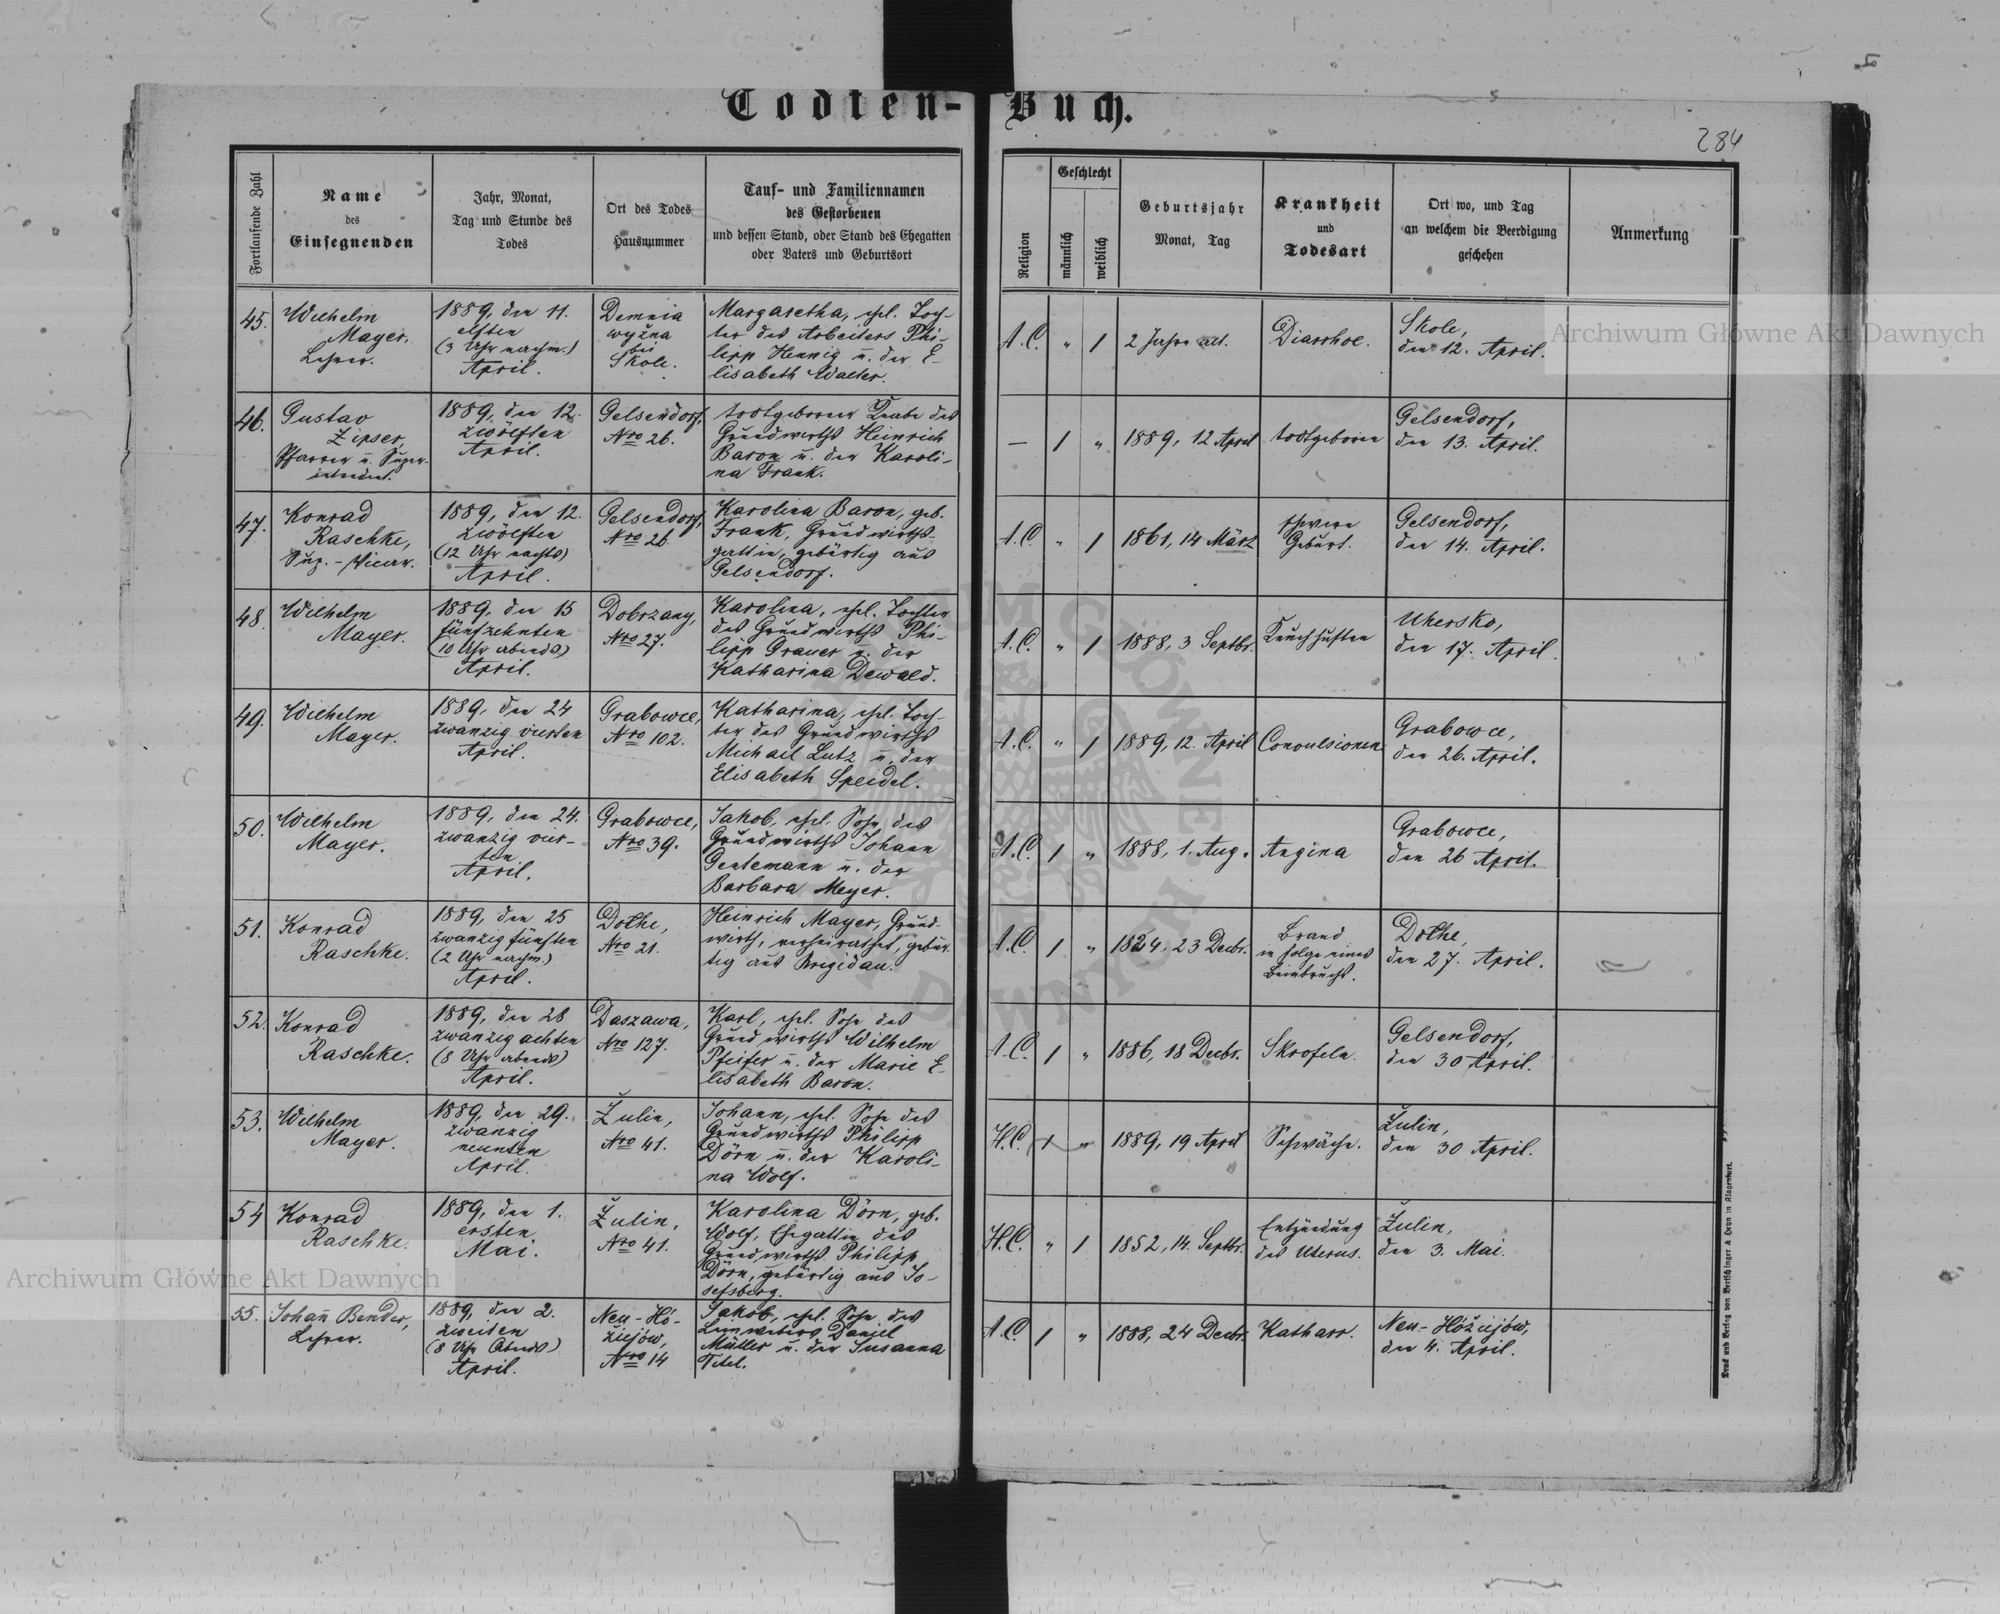 Todten-Buch.
284
Fortlaufende Zahl
Name
des
Einsegnenden
Jahr, Monat,
Tag und Stunde des
Todes
Ort des Todes
Hausnummer
Tauf- und Familiennamen
des Gestorbenen
und dessen Stand, oder Stand des Ehegatten
oder Vaters und Geburtsort
Religion
Geschlecht
männlich
weiblich
Geburtsjahr
Monat, Tag
Krankheit
und
Todesart
Ort wo, und Tag
an welchem die Beerdigung
geschehen
Anmerkung
45.
Wilhelm
Mayer.
Lehrer.
1889, den 11.
elften
(3 Uhr nachm.)
April.
Demnia
wyžna
bei
Skole.
Margaretha, ehl. Toch-
ter des Arbeiters Phi-
lipp Hennig u. der E-
lisabeth Walter.
A.C.
"
1
2 Jahre alt.
Diarrhoe.
Skole,
den 12. April.
46.
Gustav
Zipser,
Pfarrer u. Super-
intendent.
1889, den 12.
zwölften
April.
Gelsendorf,
Nro 26.
todtgeborener Knabe des
Grundwirths Heinrich
Baron u. der Karoli-
na Frank.
—
1
"
1889, 12 April
todtgeboren
Gelsendorf,
den 13. April.
47.
Konrad
Raschke,
Sup.-Vicar.
1889, den 12.
zwölften
(12 Uhr nachts)
April.
Gelsendorf,
Nro 26.
Karolina Baron, geb.
Frank, Grundwirths-
gattin, gebürtig aus
Gelsendorf.
A.C.
"
1
1861, 14 März
schwere
Geburt.
Gelsendorf,
den 14. April.
48.
Wilhelm
Mayer.
1889, den 15
fünfzehnten
(10 Uhr abends)
April.
Dobrzany,
Nro 27.
Karolina, ehl. Tochter
des Grundwirths Phi-
lipp Grauer u. der
Katharina Dewald.
A.C.
"
1
1888, 3 Septbr.
Keuchhusten
Uhersko,
den 17. April.
49.
Wilhelm
Mayer.
1889, den 24
zwanzig vierten
April.
Grabowce,
Nro 102.
Katharina, ehl. Toch-
ter des Grundwirths
Michael Lutz u. der
Elisabeth Speidel.
A.C.
"
1
1889, 12. April
Convulsionen
Grabowce,
den 26. April.
50.
Wilhelm
Mayer.
1889, den 24.
zwanzig vier-
ten
April.
Grabowce,
Nro 39.
Jakob, ehl. Sohn des
Grundwirths Johann
Gentemann u. der
Barbara Meyer.
A.C.
1
"
1888, 1. Aug.
Angina
Grabowce,
den 26 April.
51.
Konrad
Raschke.
1889, den 25
zwanzig fünften
(2 Uhr nachm.)
April.
Dothe,
Nro 21.
Heinrich Mayer, Grund-
wirth, verheirathet, gebür-
tig aus Brigidau.
A.C.
1
"
1824, 23 Decbr.
Brand
in Folge eines
Beinbruchs.
Dothe,
den 27. April.
52.
Konrad
Raschke.
1889, den 28
zwanzig achten
(8 Uhr abends)
April.
Daszawa,
Nro 127.
Karl, ehl. Sohn des
Grundwirths Wilhelm
Pfeifer u. der Marie E-
lisabeth Baron.
A.C.
1
"
1886, 18 Decbr.
Skrofeln.
Gelsendorf,
den 30 April.
53.
Wilhelm
Mayer.
1889, den 29.
zwanzig
neunten
April.
Žulin,
Nro 41.
Johann, ehl. Sohn des
Grundwirths Philipp
Dörn u. der Karoli-
na Wolf.
H.C.
1
"
1889, 19 April
Schwäche.
Žulin,
den 30 April.
54
Konrad
Raschke.
1889, den 1.
ersten
Mai.
Žulin,
Nro 41.
Karolina Dörn, geb.
Wolf, Ehegattin des
Grundwirths Philipp
Dörn, gebürtig aus Jo-
sefsberg.
H.C.
"
1
1852, 14. Septbr.
Entzündung
des Uterus.
Žulin,
den 3. Mai.
55.
Johann̄ Bender,
Lehrer.
1889, den 2.
zweiten
(8 Uhr Abends)
April.
Neu-Hó-
žiejów,
Nro 14
Jakob, ehl. Sohn des
Leinwebers Daniel
Müller u. der Susanna
Titel.
A.C.
1
"
1888, 24 Decbr.
Katharr.
Neu-Hóžiejów,
den 4. April.
Druck und Verlag von Bertschinger & Heyn in Klagenfurt.
Archiwum Główne Akt Dawnych
Archiwum Główne Akt Dawnych